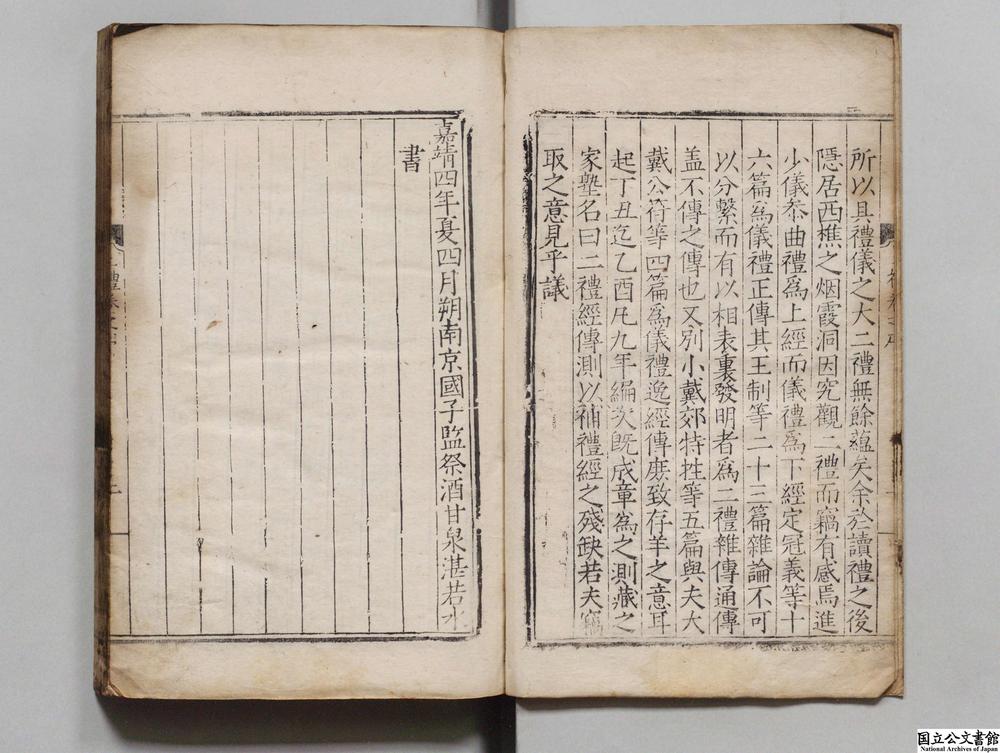 所以具禮儀之大二禮無餘蘊矣余於讀禮之後
隱居西樵之烟霞洞因究觀二禮而竊有感焉進
少儀叅曲禮爲上經而儀禮爲下經定冠義等十
六篇爲儀禮正傳其王制等二十三篇雜論不可
以分繫而有以相表裏發明者爲二禮雜傳通傳
盖不傳之傳也又別小戴郊特牲等五篇與夫大
戴公符等四篇爲儀禮逸經傳庶致存羊之意耳
起丁丑迄乙酉凡九年編次旣成章爲之測藏之
家塾名曰二禮經傳測以補禮經之殘缺若夫竊
取之意見乎議
嘉靖四年夏四月朔南京國子監祭酒甘泉湛若水
書
二禮
国立公文書館
National Archives of Japan